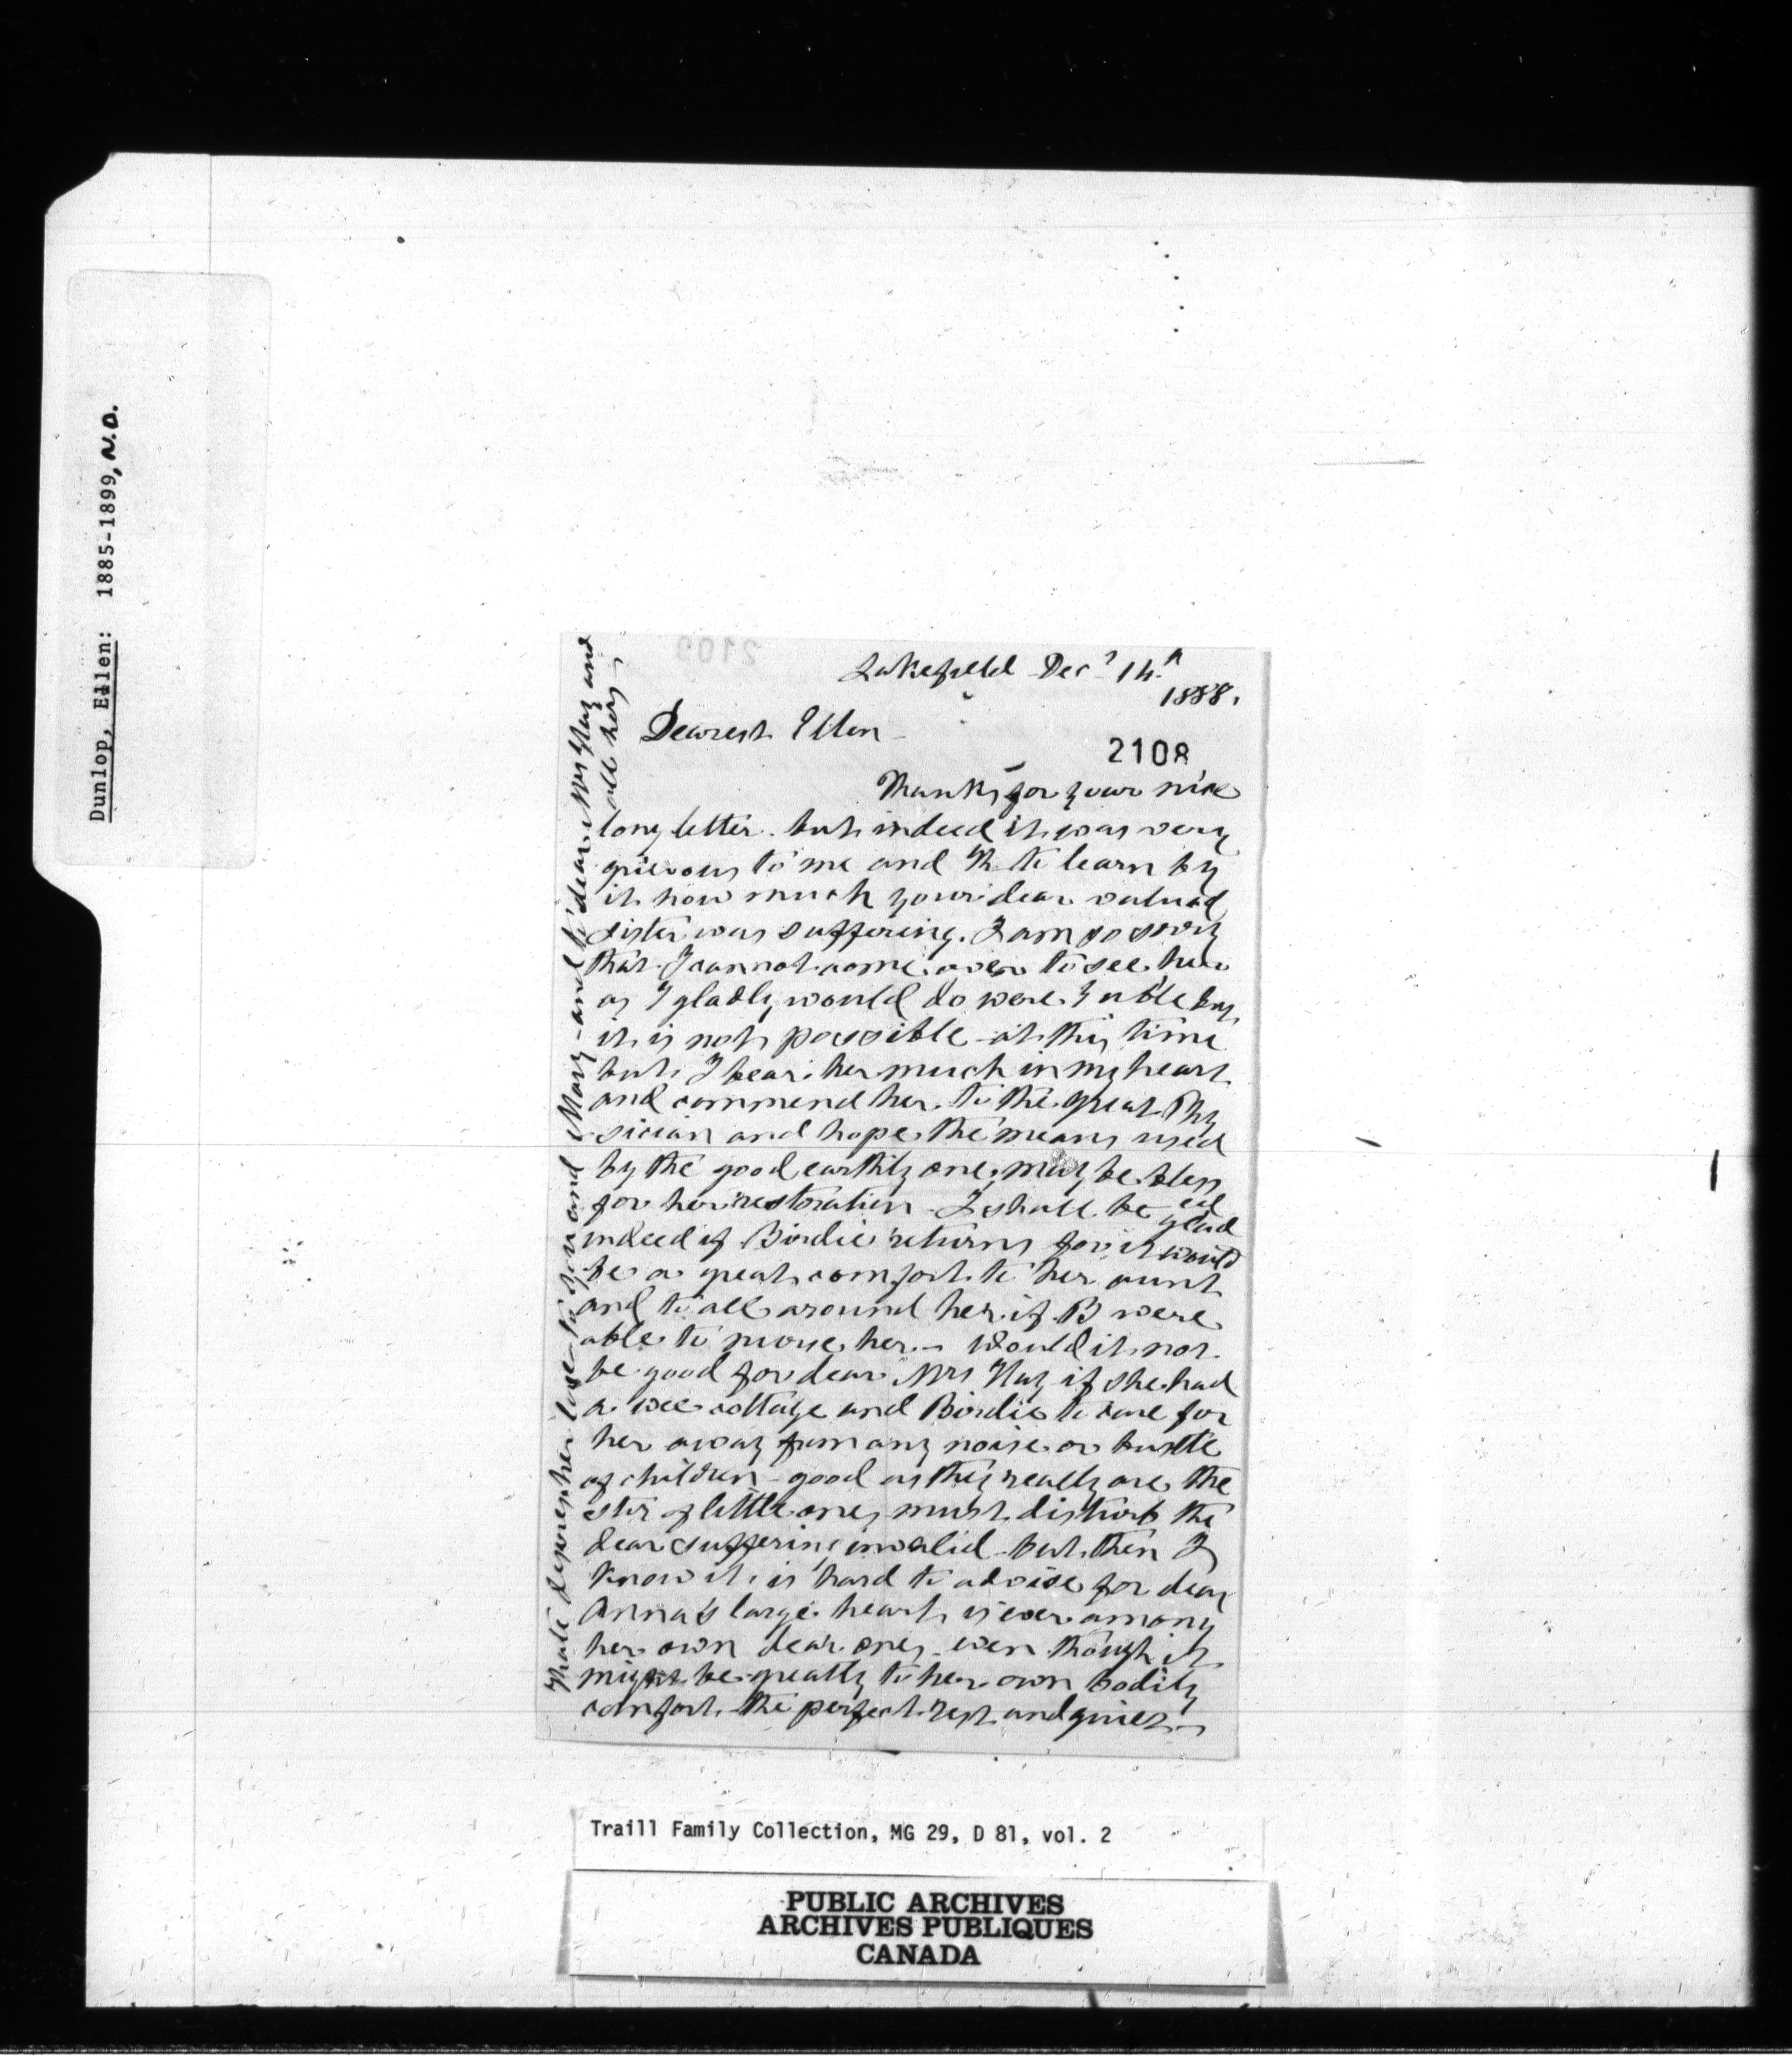 Dunlop, Ellen: 1885-1899, N.D.
Lakefield Decr 14th
1888.
Dearest Ellen
2108
Thanks for your nice
long letter. but indeed it was very
grievous to me and K to learn by
it how much your dear valued
sister was suffering. I am so sorry
that I cannot come over to see her
as I gladly would do were I able but
it is not possible at this time
but I bear her much in my heart
and commend her to the great Phy
sician and hope the means used
by the good earthly one, may be bless
ed
for her restoration - I shall be glad
indeed if Birdie returns for it would
be a great comfort to her aunt
and to all around her if B were
able to move her - Would it not
be good for dear Mrs Hay if she had
a wee cottage and Birdie to care for
her away from any noise or bustle
of children - good as they really are the
stir of little ones must disturb the
dear suffering invalid - but then I
know it is hard to advise for dear
Anna's large heart is ever among
her own dear ones even though it
might be greatly to her own bodily
comfort the perfect rest and quiet -
Kate desires her love to you and Mary - and to dear Mrs Hay and
all hers -
Traill Family Collection, MG 29, D 81, vol. 2
PUBLIC ARCHIVES
ARCHIVES PUBLIQUES
CANADA